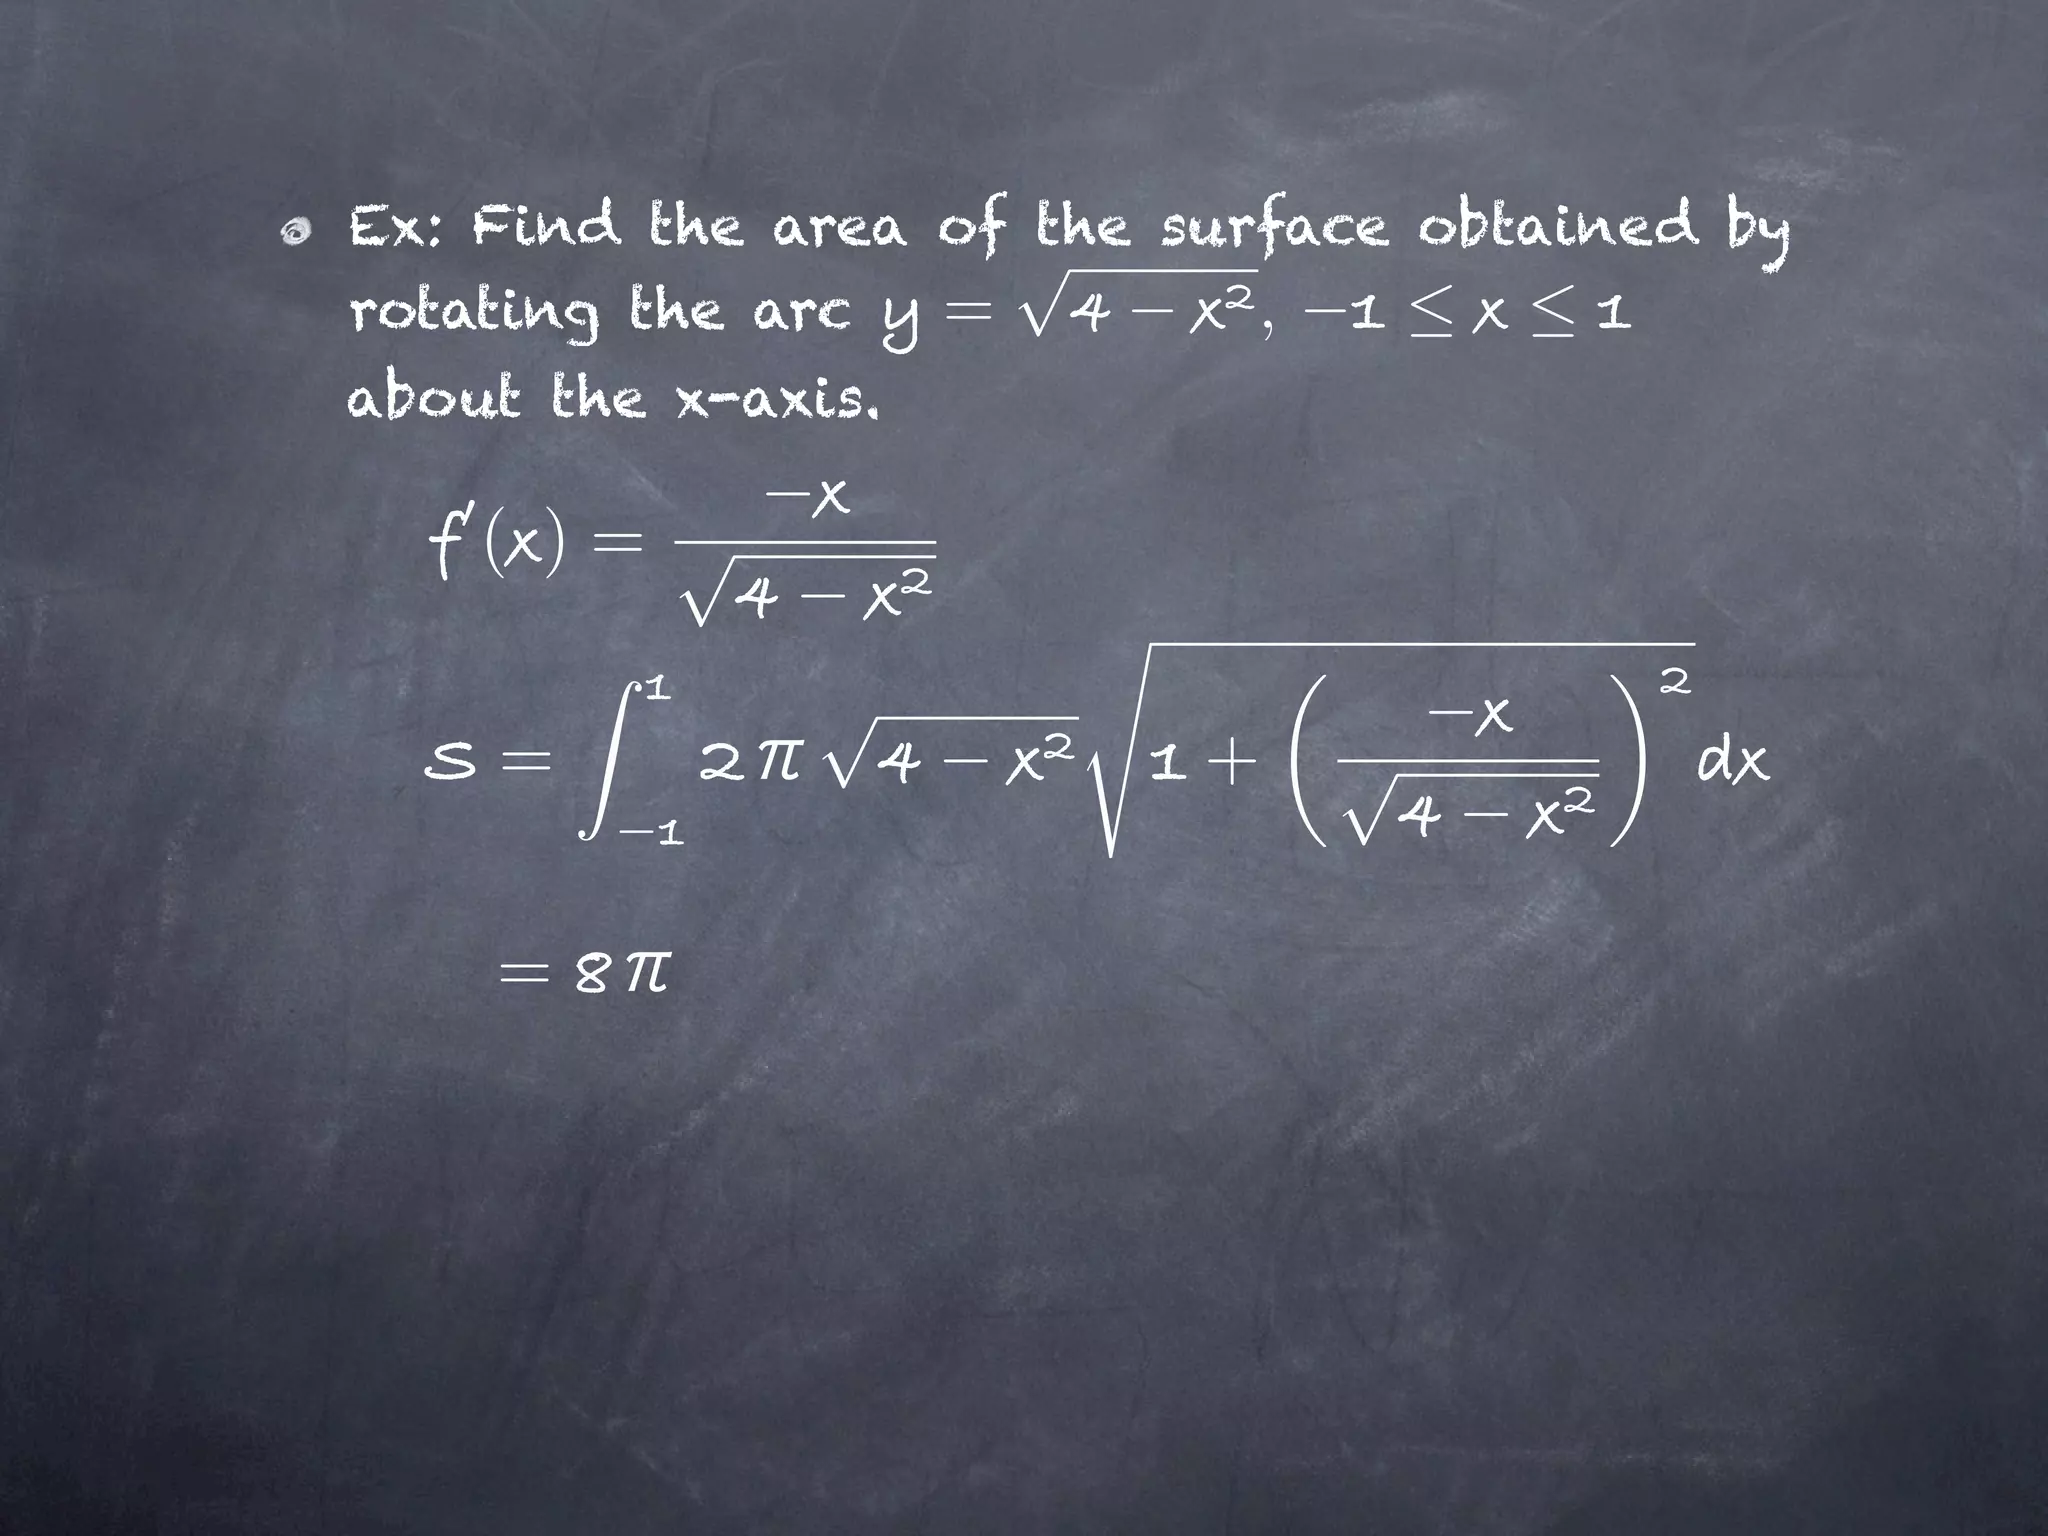 Ex: Find the area of the surface obtained by
rotating the arc y = √(4 − x²), −1 ≤ x ≤ 1
about the x-axis.
f′(x) = −x / √(4 − x²)
S = ∫₋₁¹ 2π √(4 − x²) √(1 + (−x / √(4 − x²))²) dx
= 8π